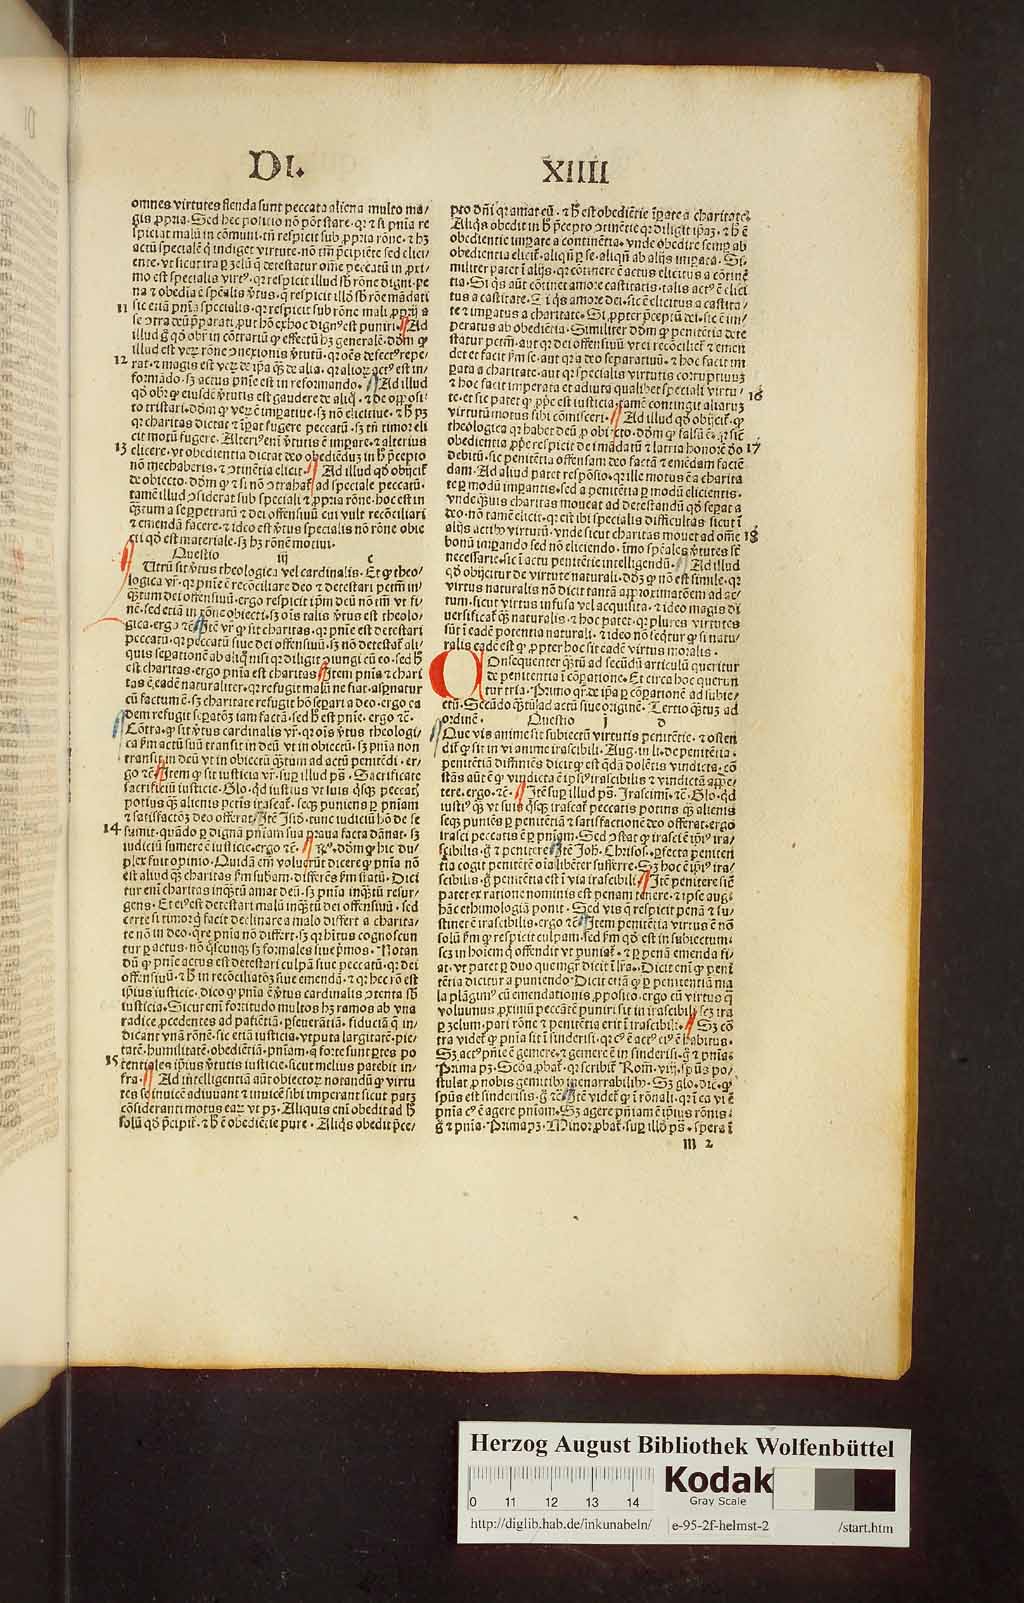 DI. XIIII
omnes virtutes flenda sunt peccata aliena multo ma/
gis ꝓpria. Sed hec positio nō pōt stare. qꝛ ⁊ si pnīa re
spiciat malū in cōmuni. tn̄ respicit sub ꝓpria rōne. ⁊ hꝫ
actū specialē q̄ indiget virtute. nō tm̄ p̄cipiēte sed elici/
ente. vt sicut ira ꝑ zelū q̄ detestatur oīm̄ peccatū in ꝓxi/
mo est specialis virtꝰ. qꝛ respicit illud sb̄ rōne digni. pe
na ⁊ obediā ē sp̄ealis v̄tus. q̄ respicit illō sb̄ rōe mādati
11 sic etiā pnīa specialis. qꝛ respicit sub rōne mali ꝓprij a
se ꝯtra deū ꝑparati. pur hō ex hoc dignꝰ est puniri. Ad
illud g̊ qō obr̄ in cōtrariū ꝙ effectū hꝫ generalē. dōm ꝙ
illud est veꝝ rōne ꝯnexionis v̄tutū. qꝛ oēs defectꝰ repe/
12 rat. ⁊ magis est veꝝ de ip̄a qꝫ de alia. qꝛ alioꝝ actꝰ est in/
formādo. sꝫ actus pnīe est in reformando. Ad illud
qō obr̄ ꝙ eiusdē v̄tutis est gaudere de aliq̊. ⁊ de opposi/
to tristari. dōm ꝙ veꝝ ē imꝑatiue. sꝫ nō elicitiue. ⁊ h̄ pꝫ
qꝛ charitas dictat ⁊ īꝑat fugere peccatū. sꝫ tn̄ timor eli
cit motū fugere. Alteriꝰ em̄ v̄tutis ē imꝑare. ⁊ alterius
13 elicere. vt obedientia dictat deo obediēdū. in h̄ p̄cepto
nō mechaberis. ⁊ ꝯtinētia elicit. Ad illud qō obijcit̄
de obiecto. dōm ꝙ ⁊ si nō ꝯtrahat̄ ad speciale peccatū.
tamē illud ꝯsiderat sub speciali ⁊ ꝓpria rōne. hoc est in
qꝫtum a se ꝑpetratū ⁊ dei offensiuū cui vult recōciliari
⁊ emendā facere. ⁊ ideo est v̄tus specialis nō rōne obie
cti qō est materiale. sꝫ hꝫ rōnē motiui.
Questio iij c
Utrū sit v̄tus theologica vel cardinalis. Et ꝙ theo/
logica vr̄. qꝛ pnīe ē recōciliare deo ⁊ detestari petm̄ in/
qꝫtum dei offensiuū. ergo respicit ip̄m deū nō tm̄ vt fi/
nē. sed etiā in rōne obiecti. sꝫ oīs talis v̄tus est theolo/
gica. ergo ⁊c̄. Itē vr̄ ꝙ sit charitas. qꝛ pnīe est detestari
peccatū. qꝛ peccatū siue dei offensiuū. sꝫ nō detestat̄ ali/
quis seꝑationē ab aliq̊ nisi qꝛ diligit ꝯiungi cū eo. sed h̄
est charitas. ergo pnīa est charitas. Item pnīa ⁊ chari
tas ē eadē naturaliter. qꝛ refugit malū ne fiat. aspnatur
cū factum ē. sꝫ charitate refugit hō seꝑari a deo. ergo ea
dem refugit seꝑatōꝫ iam factā. sed h̄ est pnīe. ergo ⁊c̄.
Cōtra. ꝙ sit v̄tus cardinalis vr̄. qꝛ oīs v̄tus theologi/
ca ẜm actū suū transit in deū vt in obiectū. sꝫ pnīa non
transit in deū vt in obiectū qꝫtum ad actū penitēdi. er/
go ⁊c̄. Item ꝙ sit iusticia vr̄. suꝑ illud pꝫ. Sacrificate
sacrificiū iusticie. Glo. qd̄ iustius vt luis q̊sqꝫ peccatꝫ
potius qꝫ alienis petīs irascat̄. seqꝫ puniens ꝑ pnīam
⁊ satisfactōꝫ deo offerat. Itē Isid̄. tunc iudiciū hō de se
14 sumit. quādo ꝑ dignā pnīam sua praua facta dānat. sꝫ
iudiciū sumere ē iusticie. ergo ⁊c̄. R̄ꝰ. dōm ꝙ hic du/
plex fuit opinio. Quidā em̄ voluerūt dicere ꝙ pnīa nō
est aliud qꝫ charitas ẜm subam. differēs ẜm statū. Dici
tur em̄ charitas inqꝫtū amat deū. sꝫ pnīa inqꝫtū resur/
gens. Et eiꝰ est detestari malū inqꝫtū dei offensiuū. sed
certe si timor q̄ facit declinare a malo differt a charita/
te nō in deo. q̄re pnīa nō differt. sꝫ qꝛ hītus cognoscun
tur ꝑ actus. nō q̊scunqꝫ sꝫ formales siue pmos. Notan
dū ꝙ pnīe actus est detestari culpā siue peccatū. qꝛ dei
offensiuū. ⁊ h̄ in recōciliatōꝫ siue emendā. ⁊ qꝛ hec rō est
ip̄ius iusticie. dico ꝙ pnīa ē v̄tus cardinalis ꝯtenta sb̄
iusticia. Sicut em̄ fortitudo multos hꝫ ramos ab vna
radice ꝓcedentes ad patiētiā. ꝑseuerātiā. fiduciā q̄ in/
dicant vnā rōnē. sic etiā iusticia. vtputa largitatē. pie/
tatē. humilitatē. obediētiā. pnīam. q̄ forte sunt ꝑtes po
15 tentiales ip̄ius v̄tutis iusticie. sicut melius patebit in/
fra. Ad intelligentiā aūt obiectoꝝ notandū ꝙ virtu
tes se inuicē adiuuant ⁊ inuicē sibi imperant sicut partꝫ
cōsideranti motus eaꝝ vt pꝫ. Aliquis em̄ obedit ad h̄
solū qō p̄cipit̄. ⁊ h̄ ē obediētie pure. Aliq̊s obedit p̄ce/
pto dn̄i qꝛ amat eū. ⁊ h̄ est obediētie īꝑate a charitate.
Aliq̊s obedit in h̄ p̄cepto ꝯtinētie qꝛ diligit ip̄aꝫ. ⁊ h̄ ē
obedientie imꝑate a continētia. vnde obedire semꝑ ab
obedientia elicit̄. aliqn̄ ꝑ se. aliqn̄ ab alijs imꝑata. Si/
militer patet ī alijs. qꝛ cōtinere ē actus elicitus a cōtinē
tia. Si q̊s aūt cōtinet amore castitatis. talis actꝰ ē elici
tus a castitate. Si q̊s amore dei. sic ē elicitus a castita/
te ⁊ imꝑatus a charitate. Si ꝓpter p̄ceptū dei. sic ē im/
peratus ab obediētia. Similiter dōm ꝙ penitētia dete
statur petm̄. aut qꝛ dei offensiuū vt ei recōciliet̄ ⁊ emen
det. et facit ẜm se. aut qꝛ a deo separatiuū. ⁊ hoc facit im
ꝑata a charitate. aut qꝛ specialis virtutis corruptiuuꝫ
⁊ hoc facit imperata et adiuta qualibet speciali virtu/
te. et sic patet ꝙ ꝓpe est iusticia. tamē contingit aliaruꝫ
16 virtutū motus sibi cōmisceri. Ad illud qō obijcit̄. ꝙ
theologica qꝛ habet deū ꝓ obiecto. dōm ꝙ falsū ē. qꝛ sic
17 obedientia ꝓpe respicit dei mādatū ⁊ latria honorē dō
debitū. sic penitētia offensam deo factā ⁊ emēdam faciē
dam. Ad aliud patet respōsio. qꝛ ille motus ē a charita
te ꝑ modū imꝑantis. sed a penitētia ꝑ modū elicientis.
vnde qꝫuis charitas moueat ad detestandū qō seꝑat a
deo. nō tamē elicit. qꝛ est ibi specialis difficultas sicut ī
18 alijs actibꝰ virtutū. vnde sicut charitas mouet ad om̄e
bonū imꝑando sed nō eliciendo. īmo sp̄eales v̄tutes st̄
necessarie. sic ī actu penitētie intelligendū. Ad illud
qō obijcitur de virtute naturali. dōꝫ ꝙ nō est simile. qꝛ
virtus naturalis nō dicit tantā approximatōem ad ac/
tum. sicut virtus infusa vel acquisita. ⁊ ideo magis di
uersificat̄ qꝫ naturalis. ⁊ hoc patet. qꝛ plures virtutes
sūt ī eadē potentia naturali. ⁊ ideo nō seqtur ꝙ si natu/
ralis eadē est ꝙ ꝓpter hoc sit eadē virtus moralis.
Consequenter qꝫtū ad secūdū articulū queritur
de penitentia ī cōꝑatione. Et circa hoc querun
tur tria. Primo qr̄ de ip̄a ꝑ cōꝑationē ad subie/
ctū. Secūdo qꝫtū ad actū siue originē. Tertio qꝫtuꝫ ad
ordinē. Questio i d
Que vis anime sit subiectū virtutis penitētie. ⁊ osten
dit̄ ꝙ sit in vi anime irascibili. Aug. in li. de penitētia.
penitētiā diffiniēs dicit ꝙ est qdā dolētis vindicta. cō
stās aūt ē ꝙ vindicta ē ip̄iꝰ irascibilis ⁊ vindictā appe/
tere. ergo. ⁊c̄. Itē suꝑ illud pꝫ. Irascimī. ⁊c̄. Glo. qd̄
iustiꝰ qꝫ vt suis q̊sqꝫ irascat̄ peccatis potius qꝫ alienis
seqꝫ puniēs ꝑ penitētiā ⁊ satisfactionē deo offerat. ergo
irasci peccatis ē ꝑ pnīam. Sed ꝯstat ꝙ irasci ē ip̄iꝰ ira/
scibilis. g̊ ⁊ penitere. Itē Joh. Chrisos. ꝑfecta peniten
tia cogit penitētē oīa libēter sufferre. Sꝫ hoc ē ip̄iꝰ ira/
scibilis. g̊ penitētia est ī via irascibili. Itē penitere sic̄
patet ex ratione nominis est penam tenere. ⁊ ipse aug.
hāc ethimologiā ponit. Sed vis q̄ respicit penā ⁊ su/
stinet ē irascibilis. ergo ⁊c̄. Item penitētia virtus ē nō
solū ẜm ꝙ respicit culpam. sed ẜm qō est in subiectum.
scꝫ in hoīem q̄ offendit vt puniat̄. ⁊ ꝑ penā emenda fi/
at. vt patet ꝑ duo que mgr̄ dicit ī lr̄a. Dicit em̄ ꝙ peni
tētia dicitur a puniendo. Dicit etiā ꝙ ꝑ penitentiā ma
la plāgimꝰ cū emendationis ꝓposito. ergo cū virtus q̄
volumus ꝓximū peccatē puniri sit in irascibili. scꝫ ira
ꝑ zelum. pari rōne ⁊ penitētia erit ī irascibili. Sꝫ cō
tra videt̄ ꝙ pnīa sit ī sinderisi. qꝛ eꝰ ē actꝰ cꝰ ē habitus.
Sꝫ actꝰ pnīe ē gemere. ⁊ gemere ē in sinderisi. g̊ ⁊ pnīa.
Prima pꝫ. Scd̄a ꝓbat̄. qꝛ scribit̄ Rom̄. viij. sp̄us po/
stulat ꝓ nobis gemitibꝰ inenarrabilibꝰ. Sꝫ glo. dīc. ꝙ
sp̄us est sinderisis. g̊ ⁊c̄. Itē videt̄ ꝙ ī rōnali. qꝛ ī ea vi ē
pnīa cꝰ ē agere pnīam. Sꝫ agere pnīam ē ip̄ius rōnis.
g̊ ⁊ pnīa. Prima pꝫ. Minor ꝓbat̄. suꝑ illō pꝫ. spera ī
m 2
Herzog August Bibliothek Wolfenbüttel
0 11 12 13 14
Kodak
Gray Scale
http://diglib.hab.de/inkunabeln/ e-95-2f-helmst-2 /start.htm